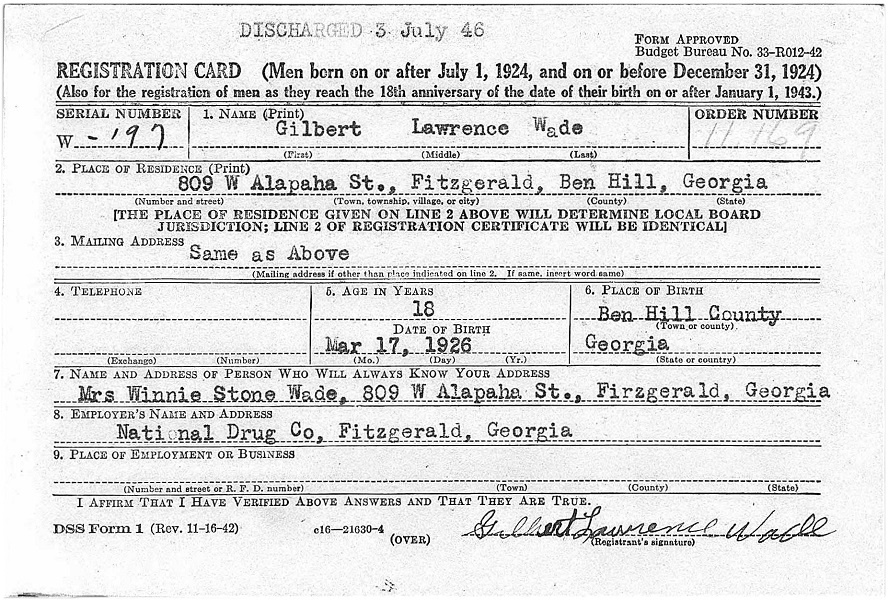 DISCHARGED 3 July 46
FORM APPROVED
Budget Bureau No. 33-R012-42
REGISTRATION CARD (Men born on or after July 1, 1924, and on or before December 31, 1924)
(Also for the registration of men as they reach the 18th anniversary of the date of their birth on or after January 1, 1943.)
SERIAL NUMBER 1. NAME (Print) ORDER NUMBER
W -197 Gilbert Lawrence Wade 11469
(First) (Middle) (Last)
2. PLACE OF RESIDENCE (Print)
809 W Alapaha St., Fitzgerald, Ben Hill, Georgia
(Number and street) (Town, township, village, or city) (County) (State)
[THE PLACE OF RESIDENCE GIVEN ON LINE 2 ABOVE WILL DETERMINE LOCAL BOARD
JURISDICTION; LINE 2 OF REGISTRATION CERTIFICATE WILL BE IDENTICAL]
3. MAILING ADDRESS
Same as Above
(Mailing address if other than place indicated on line 2. If same, insert word same)
4. TELEPHONE 5. AGE IN YEARS 6. PLACE OF BIRTH
18 Ben Hill County
DATE OF BIRTH (Town or county)
Mar 17, 1926 Georgia
(Exchange) (Number) (Mo.) (Day) (Yr.) (State or country)
7. NAME AND ADDRESS OF PERSON WHO WILL ALWAYS KNOW YOUR ADDRESS
Mrs Winnie Stone Wade, 809 W Alapaha St., Firzgerald, Georgia
8. EMPLOYER'S NAME AND ADDRESS
National Drug Co, Fitzgerald, Georgia
9. PLACE OF EMPLOYMENT OR BUSINESS
(Number and street or R. F. D. number) (Town) (County) (State)
I AFFIRM THAT I HAVE VERIFIED ABOVE ANSWERS AND THAT THEY ARE TRUE.
DSS Form 1 (Rev. 11-16-42) c16—21630-4 Gilbert Lawrence Wade
(OVER) (Registrant's signature)